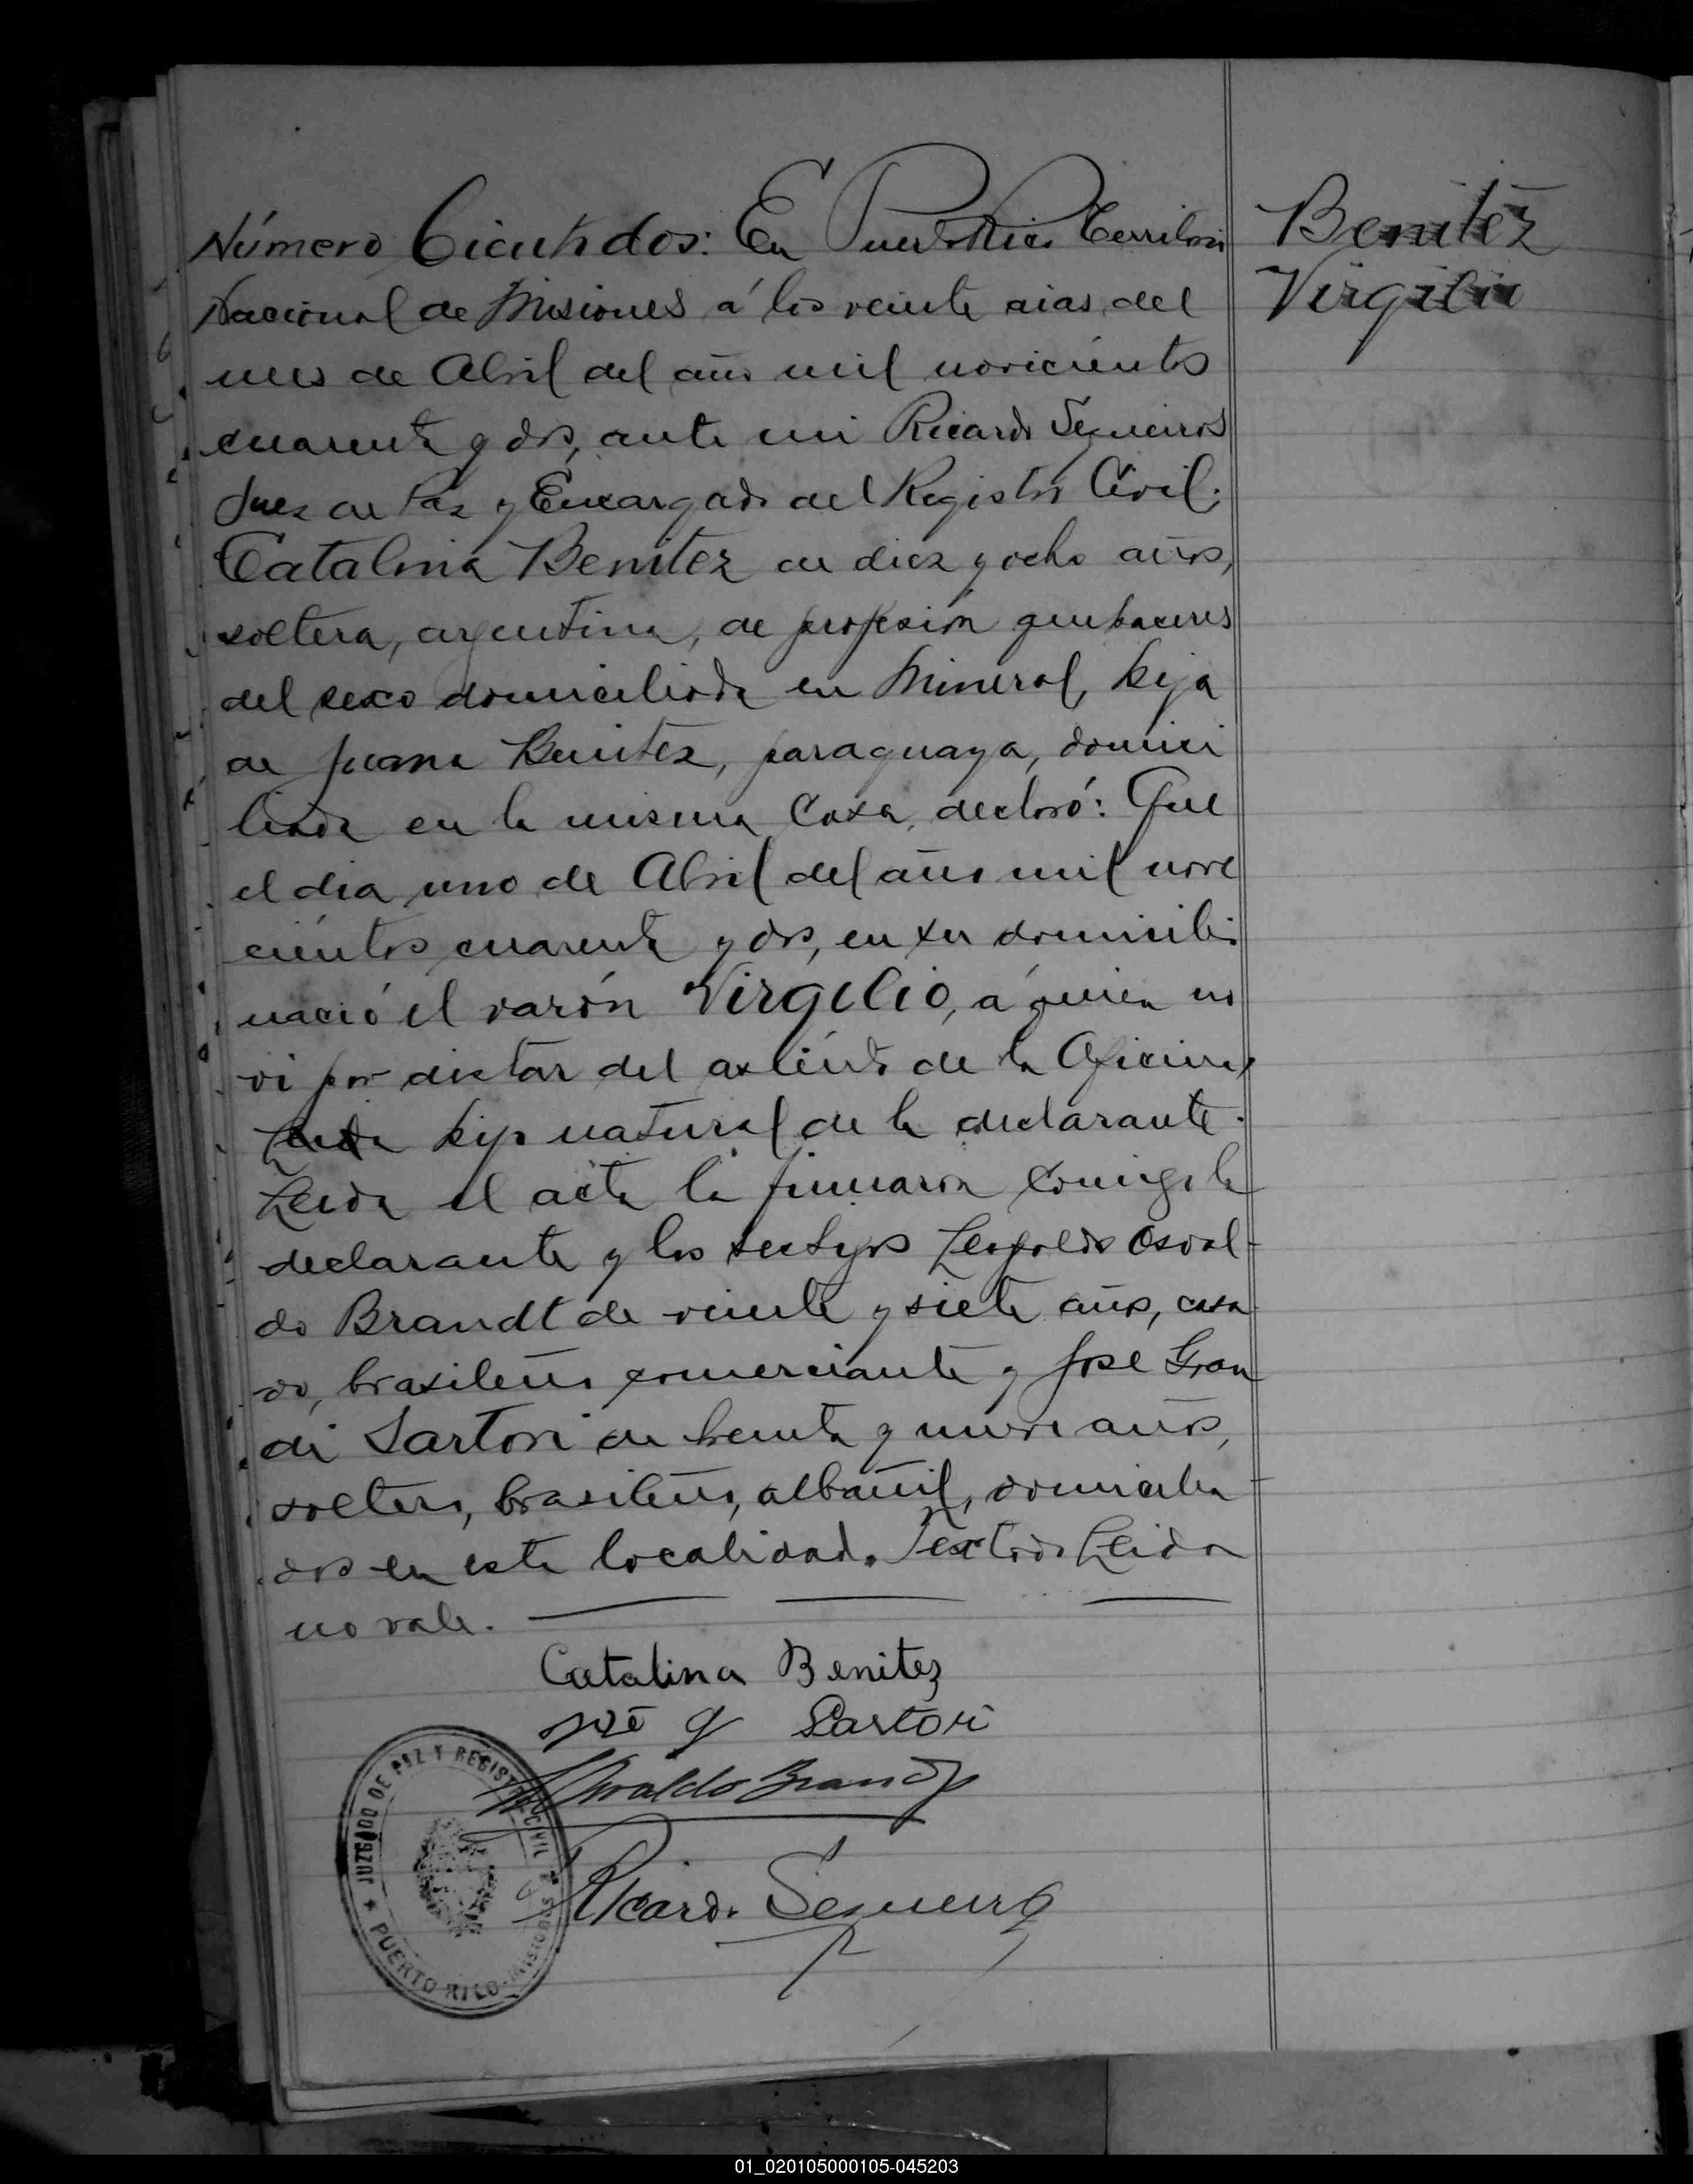 Número Ciento dos: En Puerto Rico Territorio
Nacional de Misiones á los veinte dias del
mes de Abril del año mil novicientos
cuarenta y dos, ante mi Ricardo Sequeiros
Juez de Paz y Encargado del Registro Civil:
Catalina Benitez de diez y ocho años,
soltera, argentina, de profesión quehaceres
del sexo domiciliada en Mineral, hija
de Juana Benitez, paraguaya, domici
liada en la misma Casa, declaró: Que
el dia uno de Abril del año mil nove
cientos cuarenta y dos, en su domicilio
nació el varón Virgilio, á quien no
vi por distar del asiento de la Oficina,
Leida hijo natural de la declarante.
Leida el acta la firmaron conmigo la
declarante y los testigos Leopoldo Osval-
do Brandt de veinte y siete años, casa
do, brasileño comerciante y José Gran
di Sartori de treinta y nueve años,
soltero, brasileño, albañil, domicilia
dos en esta localidad. Testado Leida
no vale.
Benitez
Virgilio
Catalina Benitez
José G Sartori
Osvaldo Brandt
Ricardo Sequeiros
JUZGADO DE PAZ Y REGISTRO CIVIL
PUERTO RICO-MISIONES
01_020105000105-045203